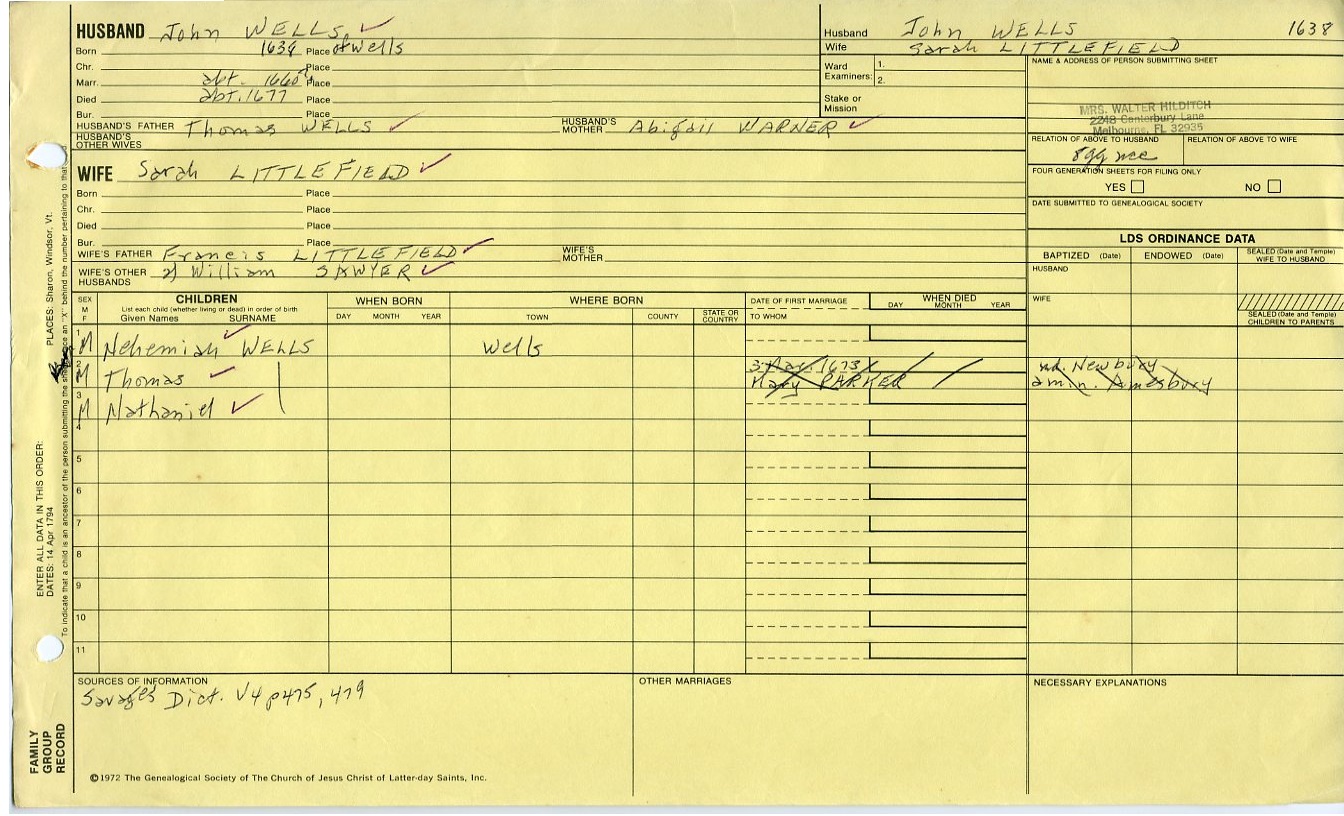 HUSBAND John WELLS
Born 1638 Place of Wells
Chr. Place
Marr. abt. 1660's Place
Died abt. 1677 Place
Bur. Place
HUSBAND'S FATHER Thomas WELLS HUSBAND'S MOTHER Abigail WARNER
HUSBAND'S OTHER WIVES
Husband John WELLS 1638
Wife Sarah LITTLEFIELD
Ward Examiners: 1.
2.
Stake or Mission
NAME & ADDRESS OF PERSON SUBMITTING SHEET
MRS. WALTER HILDITCH
2248 Canterbury Lane
Melbourne, FL 32935
RELATION OF ABOVE TO HUSBAND RELATION OF ABOVE TO WIFE
8gg nce
FOUR GENERATION SHEETS FOR FILING ONLY
YES NO
DATE SUBMITTED TO GENEALOGICAL SOCIETY
WIFE Sarah LITTLEFIELD
Born Place
Chr. Place
Died Place
Bur. Place
WIFE'S FATHER Francis LITTLEFIELD WIFE'S MOTHER
WIFE'S OTHER HUSBANDS 2) William SAWYER
LDS ORDINANCE DATA
BAPTIZED (Date) ENDOWED (Date) SEALED (Date and Temple) WIFE TO HUSBAND
HUSBAND
WIFE
SEALED (Date and Temple) CHILDREN TO PARENTS
SEX M F
CHILDREN
List each child (whether living or dead) in order of birth
Given Names SURNAME
WHEN BORN
DAY MONTH YEAR
WHERE BORN
TOWN COUNTY STATE OR COUNTRY
DATE OF FIRST MARRIAGE
TO WHOM
WHEN DIED
DAY MONTH YEAR
1 M Nehemiah WELLS Wells
2 M Thomas 3 Mar. 1673 Mary PARKER Newbury
Amesbury
3 M Nathaniel
4
5
6
7
8
9
10
11
SOURCES OF INFORMATION
Savage's Dict. V4 p475, 479
OTHER MARRIAGES
NECESSARY EXPLANATIONS
©1972 The Genealogical Society of The Church of Jesus Christ of Latter-day Saints, Inc.
FAMILY GROUP RECORD
ENTER ALL DATA IN THIS ORDER:
DATES: 14 Apr 1794
PLACES: Sharon, Windsor, Vt.
To indicate that a child is an ancestor of the person submitting the sheet, place an "X" behind the number pertaining to that